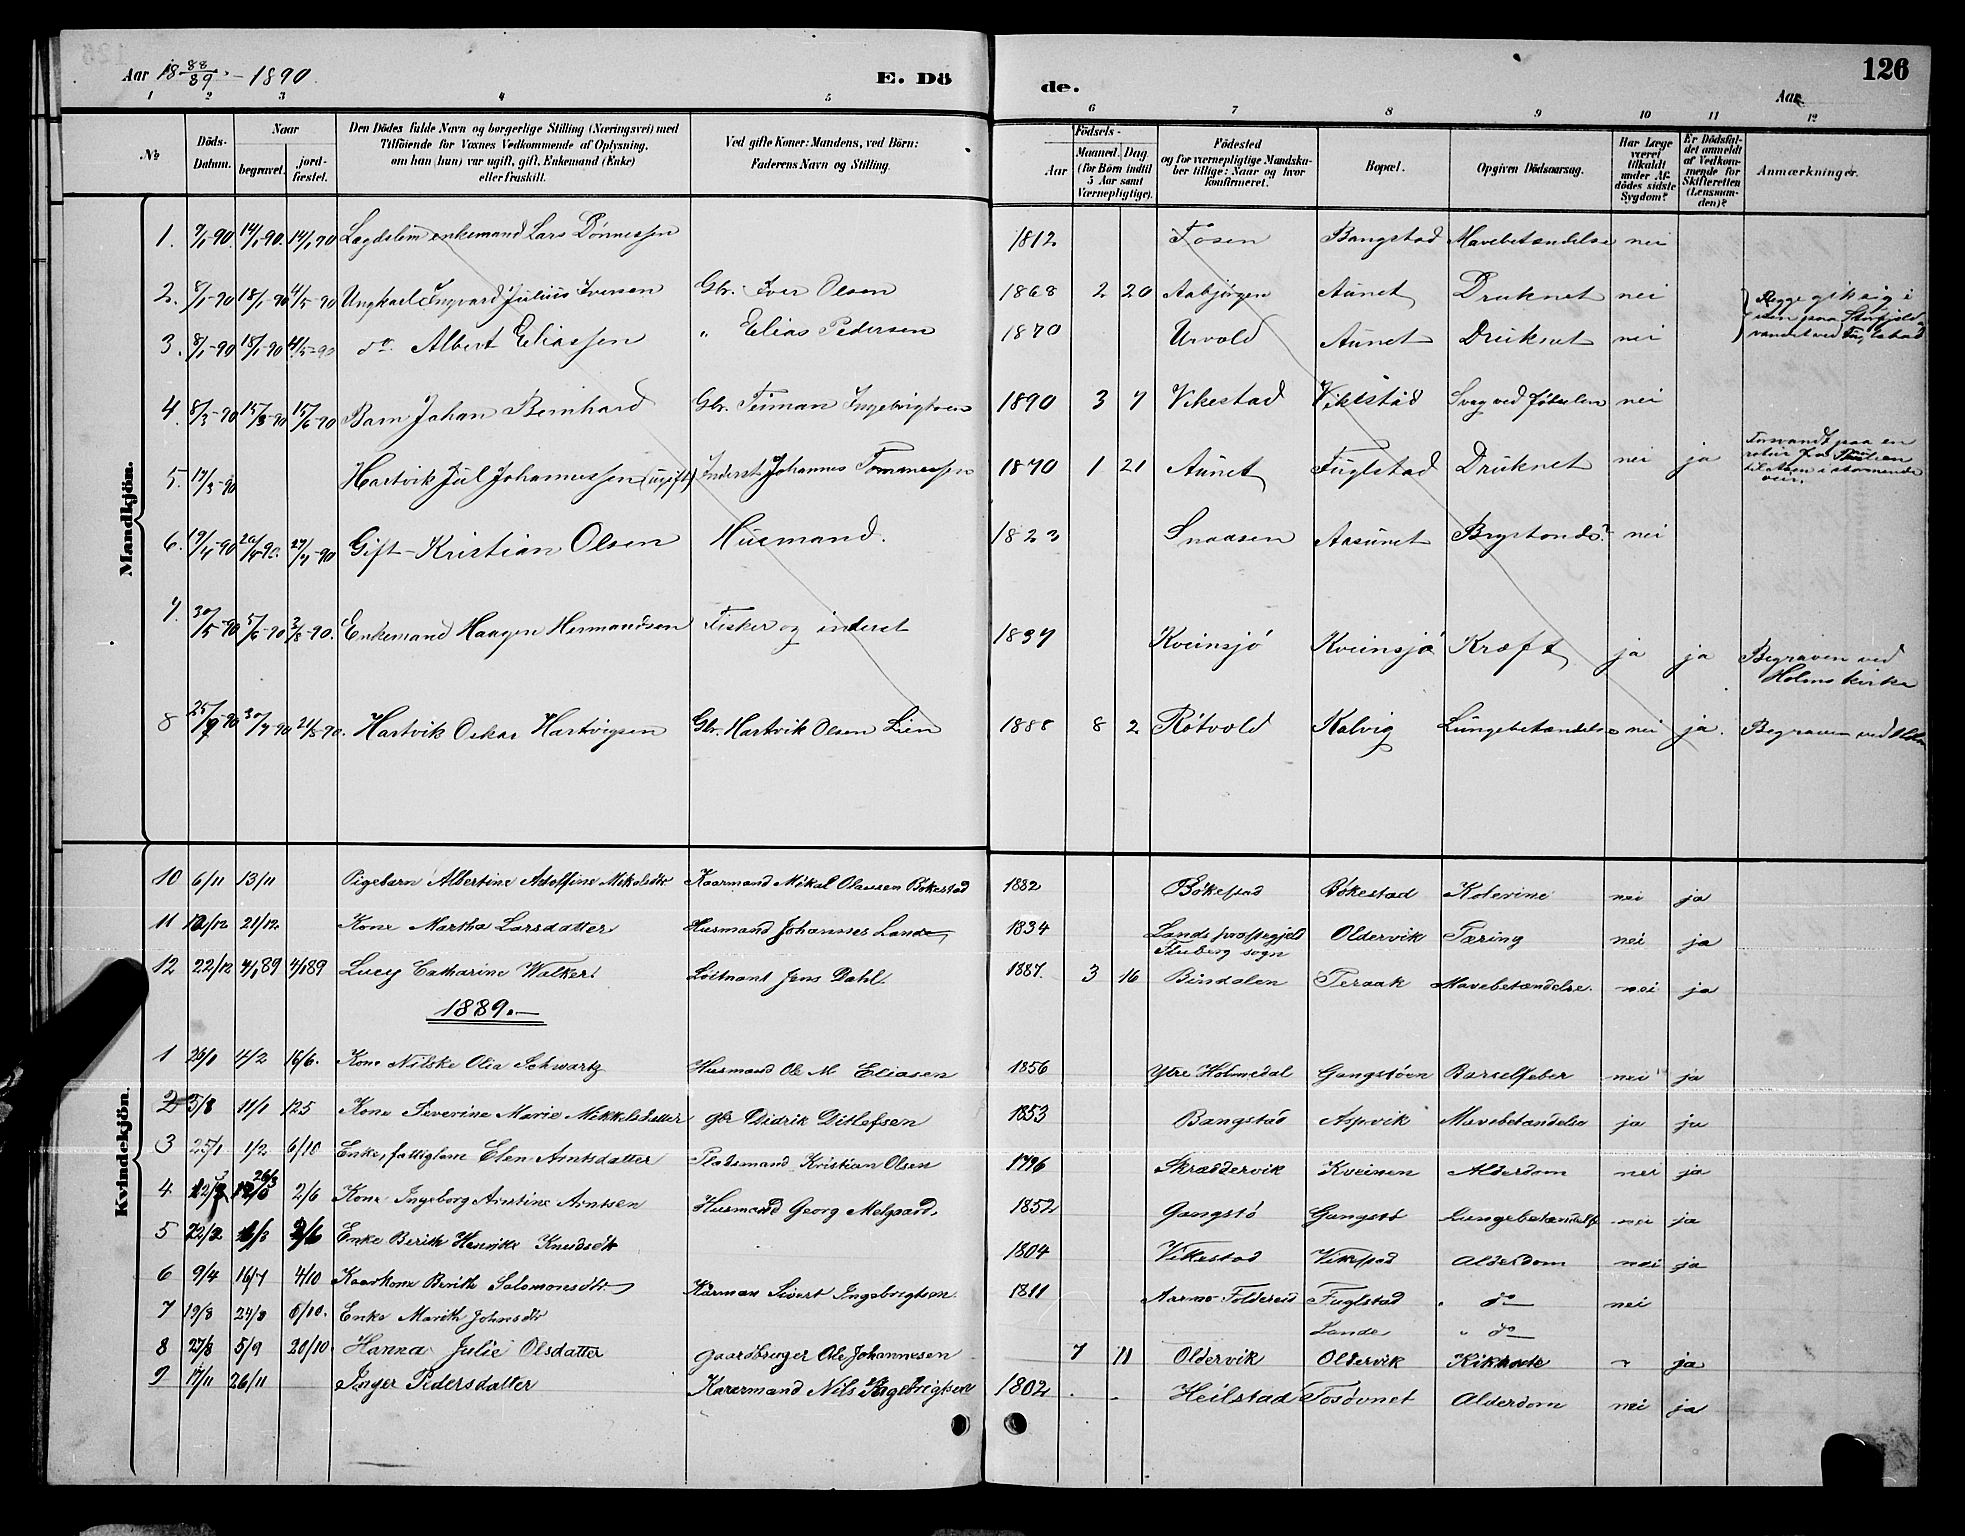 Aar 18 88/89 - 1890.
E. Dö de.
126
Aar
1 2 3 4 5 6 7 8 9 10 11 12
№
Döds-Datum.
Naar
begravet.
jord-fæstet.
Den Dödes fulde Navn og borgerlige Stilling (Næringsvei) med
Tilföiende for Voxnes Vedkommende af Oplysning,
om han (hun) var ugift, gift, Enkemand (Enke)
eller fraskilt.
Ved gifte Koner: Mandens, ved Börn:
Faderens Navn og Stilling.
Födsels-
Aar
Maaned. Dag
(for Börn indtil
5 Aar samt
Værnepligtige).
Födested
og for værnepligtige Mandska-
ber tillige: Naar og hvor
konfirmeret.
Bopæl.
Opgiven Dödsaarsag.
Har Læge
været
tilkaldt
under Af-
dödes sidste
Sygdom?
Er Dödsfal-
det anmeldt
af Vedkom-
mende for
Skifteretten
(Lensman-
den)?
Anmærkninger.
Mandkjön.
1. 9/1-90. 14/1-90. 14/1-90 Lægdslem enkemand Lars Dönnessen 1812 Fosen Bangstad Mavebetændelse nei
2. 8/1-90 18/1-90 4/5-90 Ungkarl Ingvard Julius Iversen Gbr. Iver Olsen 1868 2 20 Aabjörgen Aunet Druknet nei Begge gik sig i
3. 8/1-90 18/1-90 4/5-90 do Albert Eliassen " Elias Pedersen 1870 Urvold Aunet Druknet nei isen paa Storfjeld vandet ved Fuglstad
4. 8/3-90 15/3-90 15/6-90 Barn Johan Bernhard Gbr. Ingebrigtsen 1890 3 7 Vikestad Vikestad Svag ved födselen nei
5. 17/3-90 Hartvik Jul Johannessen (ugift) Inderst Johannes Tommessen 1870 1 21 Aunet Fuglstad Druknet nei ja Forsvandt paa en
rotur fra
til i stormende
veir.
6. 19/4-90 26/4-90. 27/4-90 Gift-Kristian Olsen Husmand. 1823 Snaasen Aasunet Brystonde? nei
7. 30/5-90 5/6-90 3/8-90. Enkemand Haagen Hermandsen Fisker og inderst 1837 Kveinsjö Kveinsjö Kræft ja ja Begraven ved
Holms kirke
8 25/7-90 30/7-90 21/8-90. Hartvik Oskar Hartvigsen Gbr. Hartvik Olsen Lien 1888 8 2 Rötvold Kalvig Lungebetændelse nei ja. Begraven ved Holm
Kvindekjön.
10 6/11 13/11 Pigebarn Albertine Adolfine Mikalsdtr Kaarmand Mikal Olausen Bökestad 1882 Bökestad Bökestad Kolerine nei ja
11 12/12 21/12 Kone Martha Larsdatter Husmand Johannes Lande 1834 Lands præstegjeld Oldervik Tæring nei ja
Fluberg sogn
12 22/12 4/1 89 4/1 89 Lucy Catharine Walker Löitnant Jens Dahl. 1887. 3 16 Bindalen Teraak Mavebetændelse. nei ja
1889.-
1 26/1 4/2 16/6. Kone Nilske Olea Schwartz Husmand Ole M. Eliasen 1856 Ytre Holmedal Gangstöen Barselfeber nei ja
2 5/8 11/1 12 5 Kone Severine Marie Mikkelsdatter gbr Didrik Ditlefsen 1853 Bangstad Aspvik Mavebetændelse ja ja
3 25/1 1/2 6/10 Enke, fattiglem Elen Arntsdatter Pladsmand Kristian Olsen 1796 Skræddervik Kveinen Alderdom nei ja
4 12/3 26/3 2/6 Kone Ingeborg Arntine Arntsen Husmand Georg 1852 Gangstö Gangstö Lungebetændelse nei ja
5 22/2 1/3 2/6 Enke Berith Henrike Knudsdtr 1804 Vikestad Vikestad Alderdom nei ja
6 9/4 16/4 4/10 Kaarkone Berith Salomonsdtr. Kårman Sivert Ingebrigtsen. 1811 Aarnö Foldereid Fuglstad " do nei
7 19/8 24/8 6/10. Enke Marith Johnsdtr Lande " do
8 27/8 5/9 20/10 Hanna Julie Olsdatter gaardbruger Ole Johannesen 7 11 Oldervik Oldervik Kikhoste " ja
9 17/11 26/11 Inger Pedersdatter Kaarmand Nils Ingebrigtsen 1802 Heilstad Tosövnet Alderdom nei ja